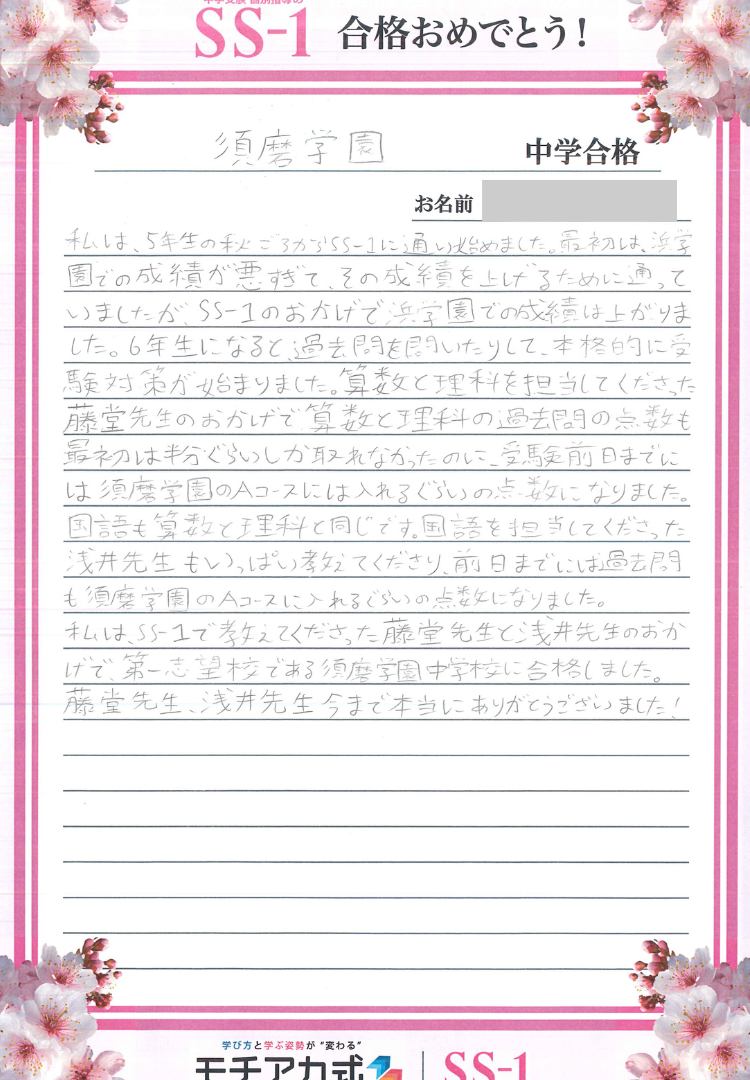 中学受験 個別指導の
SS-1 合格おめでとう!
須磨学園 中学合格
お名前
私は、5年生の秋ごろからSS-1に通い始めました。最初は、浜学
園での成績が悪すぎて、その成績を上げるために通って
いましたが、SS-1のおかげで浜学園での成績は上がりま
した。6年生になると、過去問を聞いたりして、本格的に受
験対策が始まりました。算数と理科を担当してくださった
藤堂先生のおかげで算数と理科の過去問の点数も
最初は半分ぐらいしか取れなかったのに、受験前日までに
は須磨学園のAコースには入れるぐらいの点数になりました。
国語も算数と理科と同じです。国語を担当してくださった
浅井先生もいっぱい教えてくださり、前日までには過去問
も須磨学園のAコースに入れるぐらいの点数になりました。
私は、SS-1で教えてくださった藤堂先生と浅井先生のおか
げで、第一志望校である須磨学園中学校に合格しました。
藤堂先生、浅井先生今まで本当にありがとうございました!
学び方と学ぶ姿勢が"変わる"
モチアカ式 SS-1